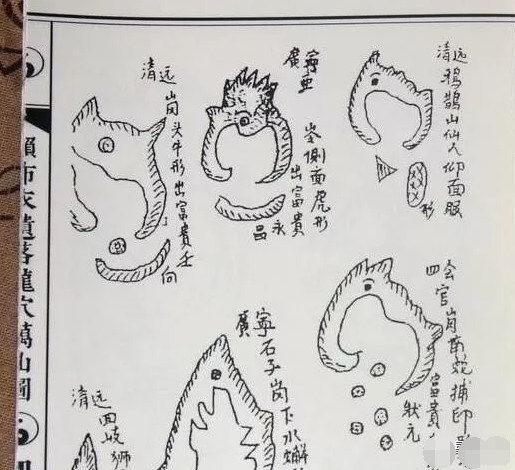 清远
鴉鵲山仙人仰面眼
形
廣寧
崀側面虎形
出富貴
永
昌
清远
崗头牛形出富貴壬
向
四会
官崗南蛇捕印
富貴
狀元
廣寧
石子崗下水
清远
回岐狮
賴布衣遺落龍穴萬山圖